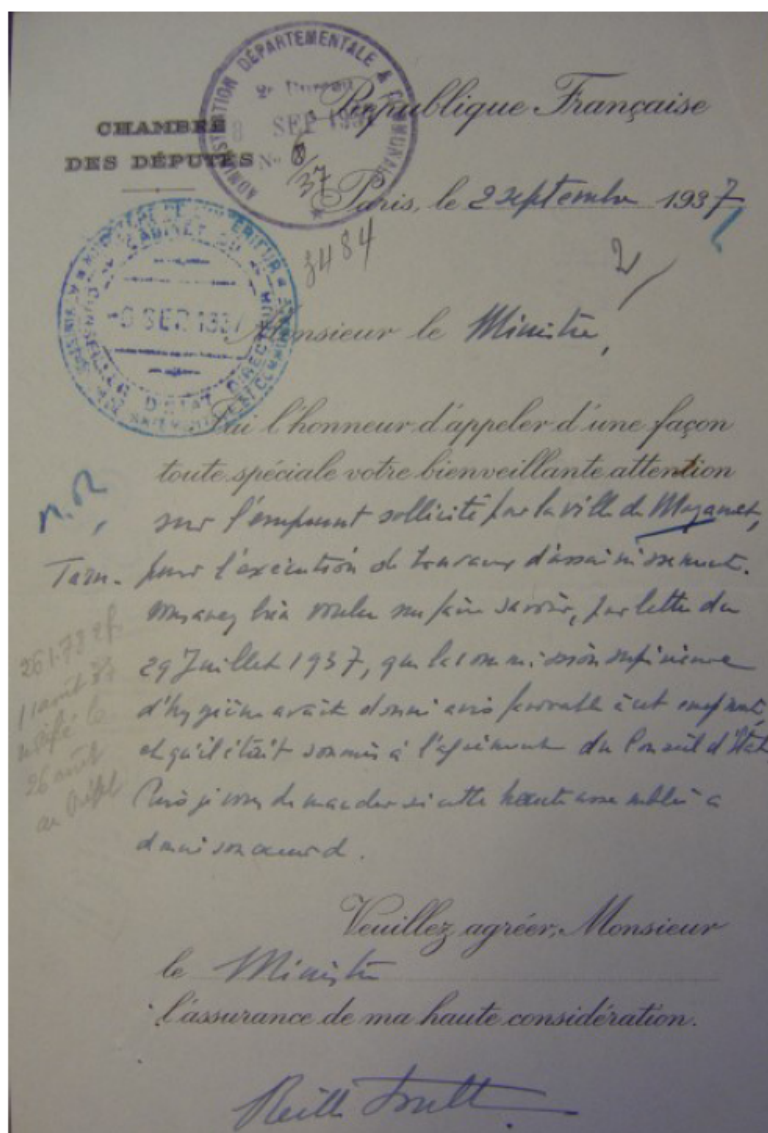 ADMINISTRATION DÉPARTEMENTALE & COMMUNALE
2e Bureau
8 SEP 1937
No 8
/37
CHAMBRE
DES DÉPUTÉS
République Française
Paris, le 2 septembre 1937
3484
MINISTÈRE DE L'INTÉRIEUR
CABINET DU
CONSEILLER D'ÉTAT DIRECTEUR
SEP 1937
Monsieur le Ministre,
J'ai l'honneur d'appeler d'une façon
toute spéciale votre bienveillante attention
sur l'emprunt sollicité par la ville de Mazamet,
Tarn. pour l'exécution de travaux d'assainissement.
Vous avez bien voulu me faire savoir, par lettre du
29 Juillet 1937, que la commission supérieure
d'hygiène avait donné avis favorable à cet emprunt,
et qu'il était soumis à l'agrément du Conseil d'Etat
Puis je vous demander si cette haute assemblée a
donné son accord.
11 août 37
notifié le
26 août
au Préfet
Veuillez agréer, Monsieur
le Ministre
l'assurance de ma haute considération.
Reille Soult